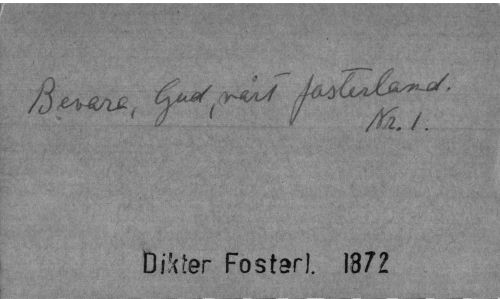 Bevara, Gud, vårt fosterland.
Nr. 1.
Dikter Fosterl. 1872